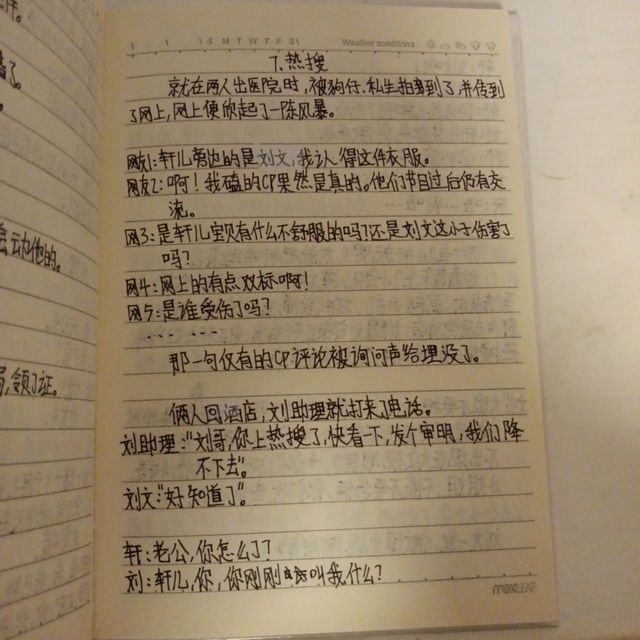 件。
着了。
会动他的。
局,领了证。
S M T W T F S Weather conditions
7.热搜
就在两人出医院时,被狗仔、私生拍到了,并传到
了网上,网上便掀起了一阵风暴。
网友1:轩儿旁边的是刘文,我认得这件衣服。
网友2:啊!我磕的CP果然是真的。他们节目过后仍有交
流。
网3:是轩儿宝贝有什么不舒服的吗?还是刘文这小子伤害了
吗?
网4:网上的有点双标啊!
网5:是谁受伤了吗?
... ...
那一句仅有的CP评论被询问声给埋没了。
俩人回酒店,刘助理就打来了电话。
刘助理:“刘哥,你上热搜了,快看下,发个审明,我们降
不下去”。
刘文:“好知道了”。
轩:老公,你怎么了?
刘:轩儿,你,你刚刚叫我什么?
LEAF